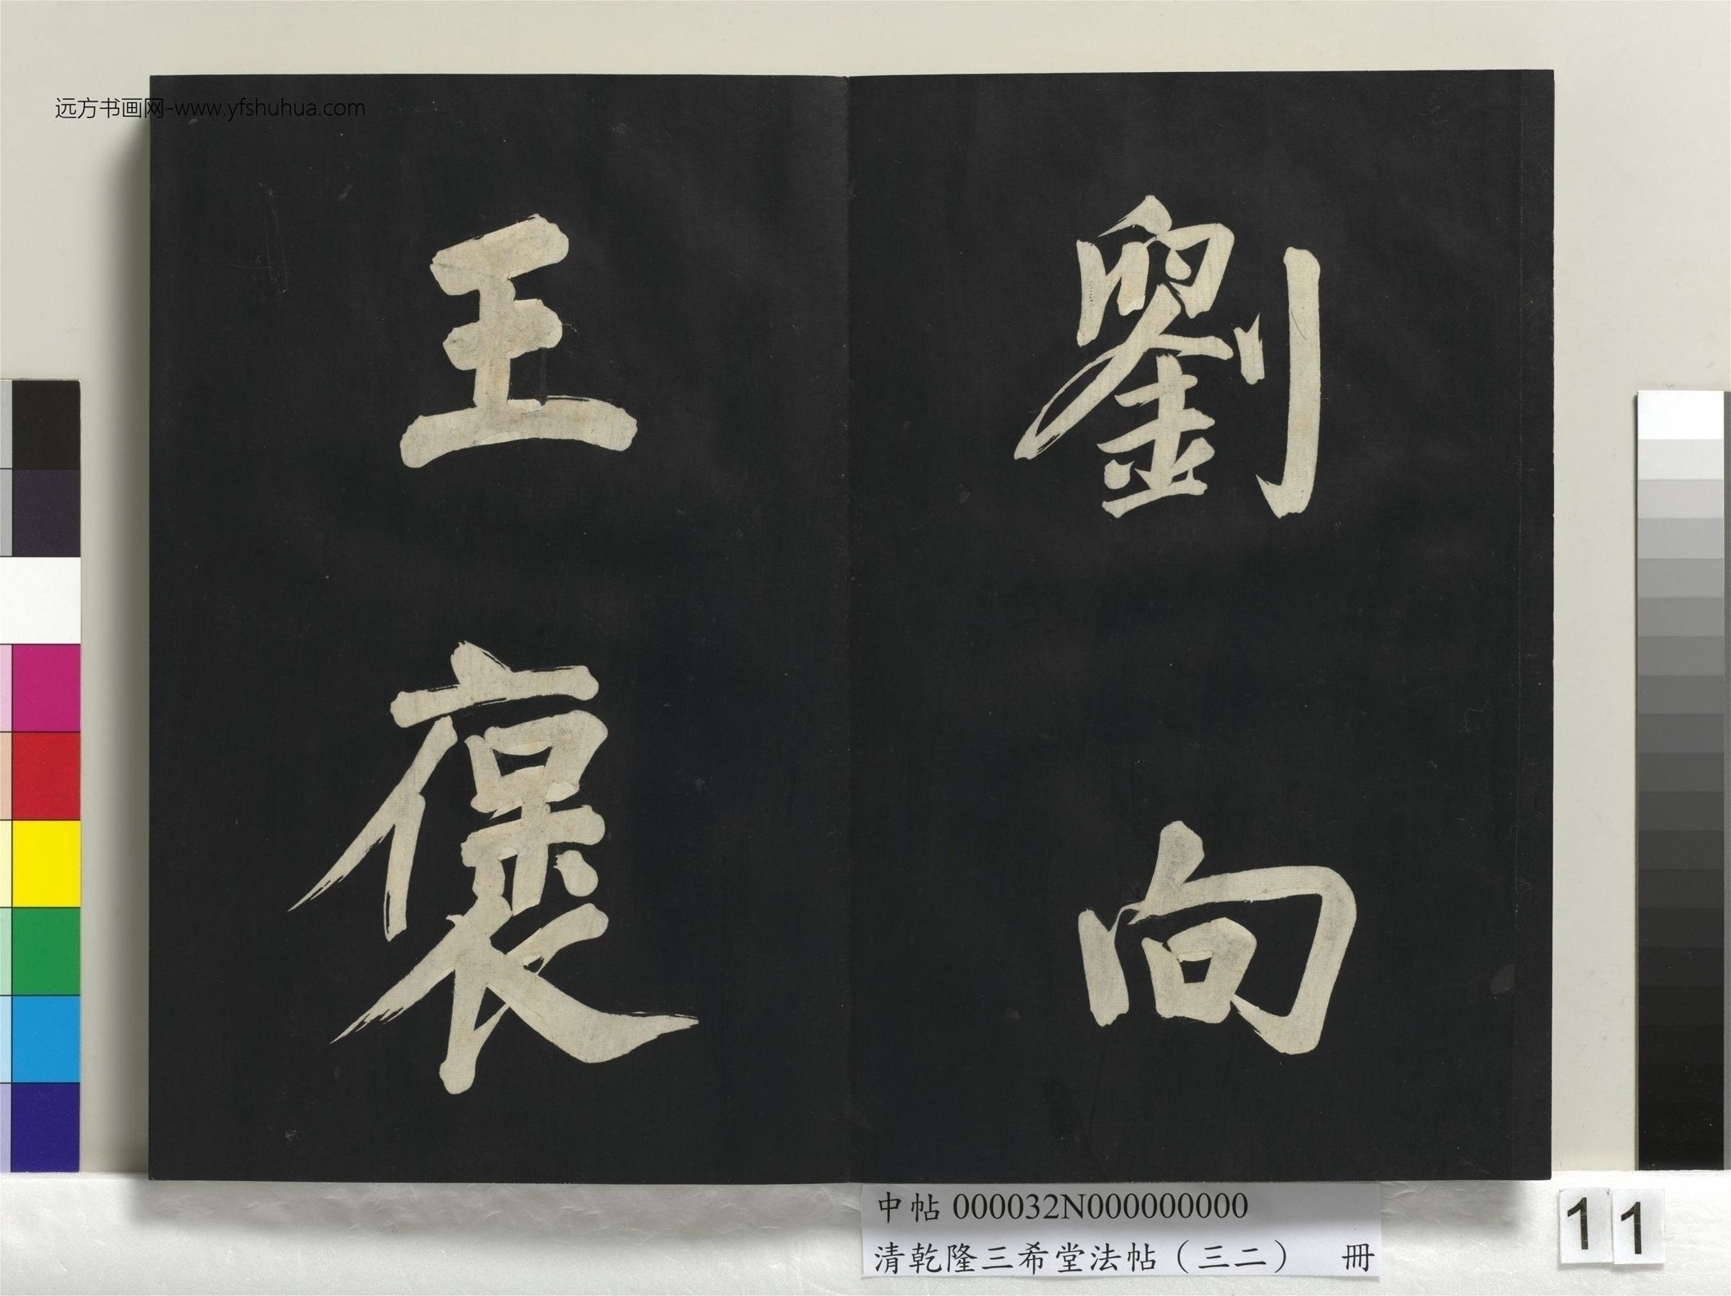 远方书画网-www.yfshuhua.com
劉向
王褒
中帖 000032N000000000
清乾隆三希堂法帖（三二） 冊
11